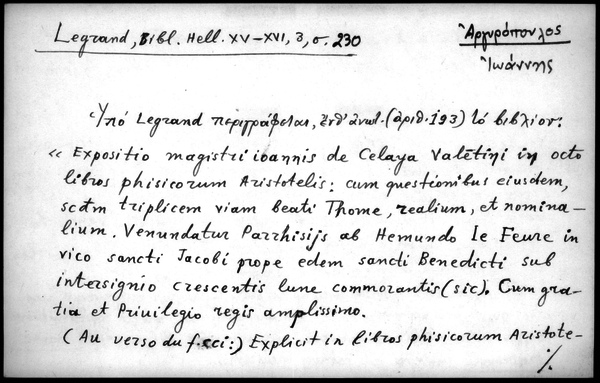 Legrand, Bibl. Hell. XV–XVI, 3, σ. 230
Ἀργυρόπουλος
Ἰωάννης
Ὑπό Legrand περιγράφεται, ἔνθ' ἀνωτ. (ἀριθ. 193) τό βιβλίον:
« Expositio magistri ioannis de Celaya Valētini in octo
libros phisicorum Aristotelis: cum questionibus eiusdem,
scdm triplicem viam beati Thome, realium, et nomina–
lium. Venundatur Parrhisijs ab Hemundo le Feure in
vico sancti Jacobi prope edem sancti Benedicti sub
intersignio crescentis lune commorantis (sic). Cum gra–
tia et Priuilegio regis amplissimo.
(Au verso du f. cci:) Explicit in libros phisicorum Aristote–
./.